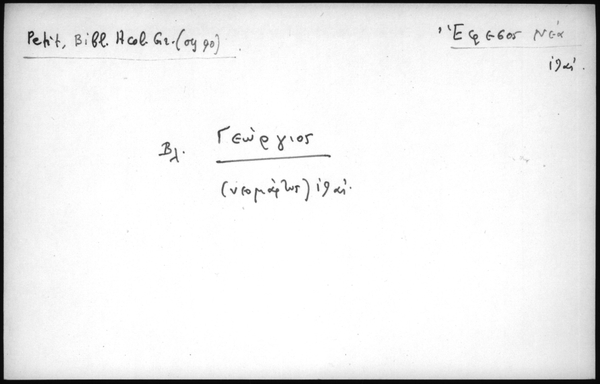 Petit, Bibl. Acol. Gr. (σγ 90)
Ἔφεσος Νέα
ιθαί.
Βλ. Γεώργιος
(νεομάρτυς) ιθαί.